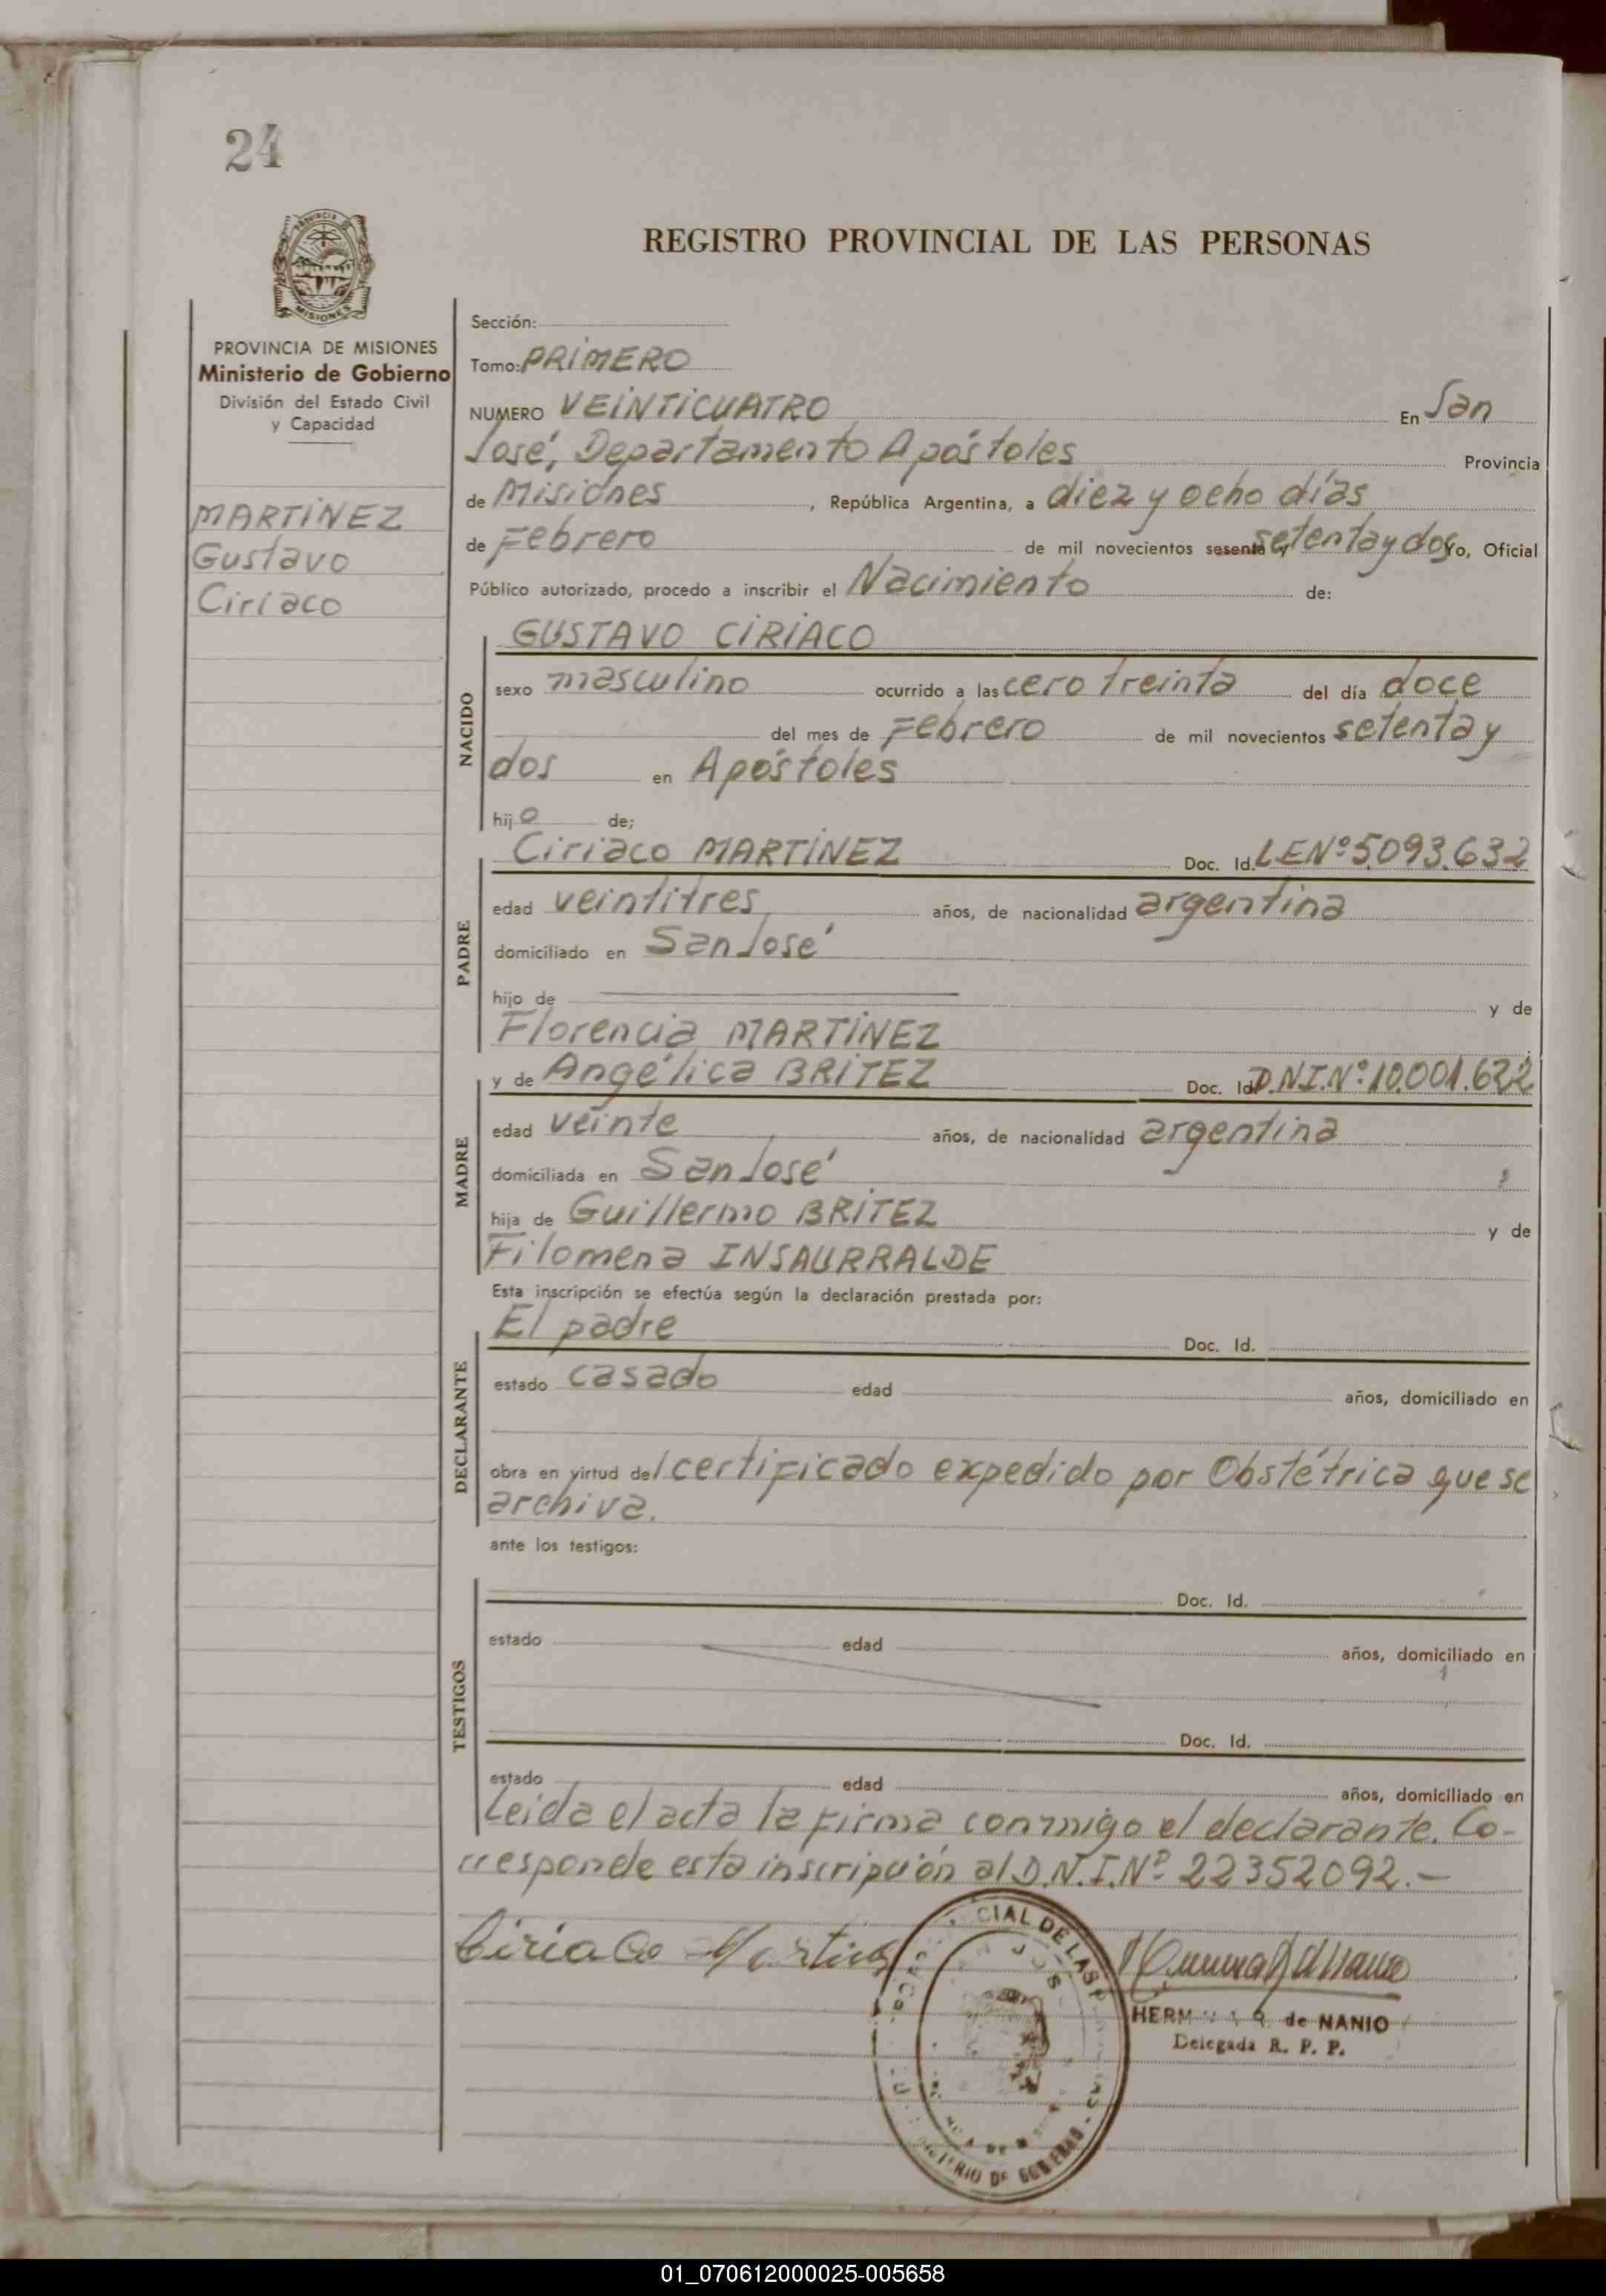 24
REGISTRO PROVINCIAL DE LAS PERSONAS
PROVINCIA
MISIONES
PROVINCIA DE MISIONES
Ministerio de Gobierno
División del Estado Civil
y Capacidad
MARTINEZ
Gustavo
Ciriaco
Sección:
Tomo: PRIMERO
NUMERO VEINTICUATRO En San
José, Departamento Apóstoles Provincia
de Misiones, República Argentina, a diez y ocho días
de Febrero de mil novecientos sesenta y setenta y dos Yo, Oficial
Público autorizado, procedo a inscribir el Nacimiento de:
NACIDO
GUSTAVO CIRIACO
sexo masculino ocurrido a las cero treinta del día doce
del mes de Febrero de mil novecientos setenta y
dos en Apóstoles
hijo de;
PADRE
Ciriaco MARTINEZ Doc. Id. LENº 5.093.632
edad veintitres años, de nacionalidad argentina
domiciliado en San José
hijo de y de
Florencia MARTINEZ
MADRE
y de Angélica BRITEZ Doc. Id. D.N.I.Nº 10.001.622
edad veinte años, de nacionalidad argentina
domiciliada en San José
hija de Guillermo BRITEZ y de
Filomena INSAURRALDE
Esta inscripción se efectúa según la declaración prestada por:
DECLARANTE
El padre Doc. Id.
estado casado edad años, domiciliado en
obra en virtud del certificado expedido por Obstétrica que se
archiva.
ante los testigos:
TESTIGOS
Doc. Id.
estado edad años, domiciliado en
Doc. Id.
estado edad años, domiciliado en
Leida el acta la firma conmigo el declarante. Co-
rresponde esta inscripción al D.N.I.Nº 22352092.-
Ciriaco Martinez
CIAL DE LAS P
DE GOBIERNO
de NANIO
Delegada R. P. P.
01_070612000025-005658